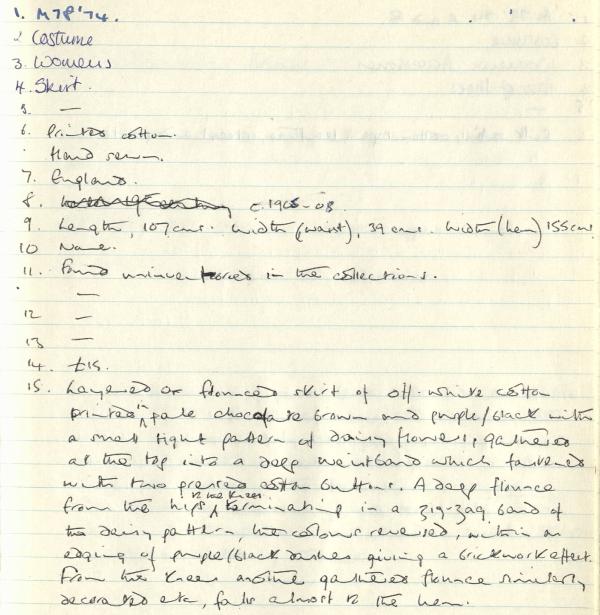 1. M78'74.
2 Costume
3. Womens
4. Skirt.
5. —
6. Printed cotton.
Hand sewn.
7. England.
8. c.1905-08
9. Length, 107cms. Width (waist), 39 cms. Width (hem) 155cms
10 None.
11. Found uninventoried in the collections.
—
12 —
13 —
14.
15. Layered or flounced skirt of off-white cotton
printed in pale chocolate brown and purple/black with
a small tight pattern of daisy flowers, gathered
at the top into a deep waistband which fastened
with two pressed cotton buttons. A deep flounce
from the hips to the knees terminating in a zig-zag band of
the daisy pattern, the colours reversed, within an
edging of purple/black dashes giving a brickwork effect.
From the knees another gathered flounce similarly
decorated etc, falls almost to the hem.